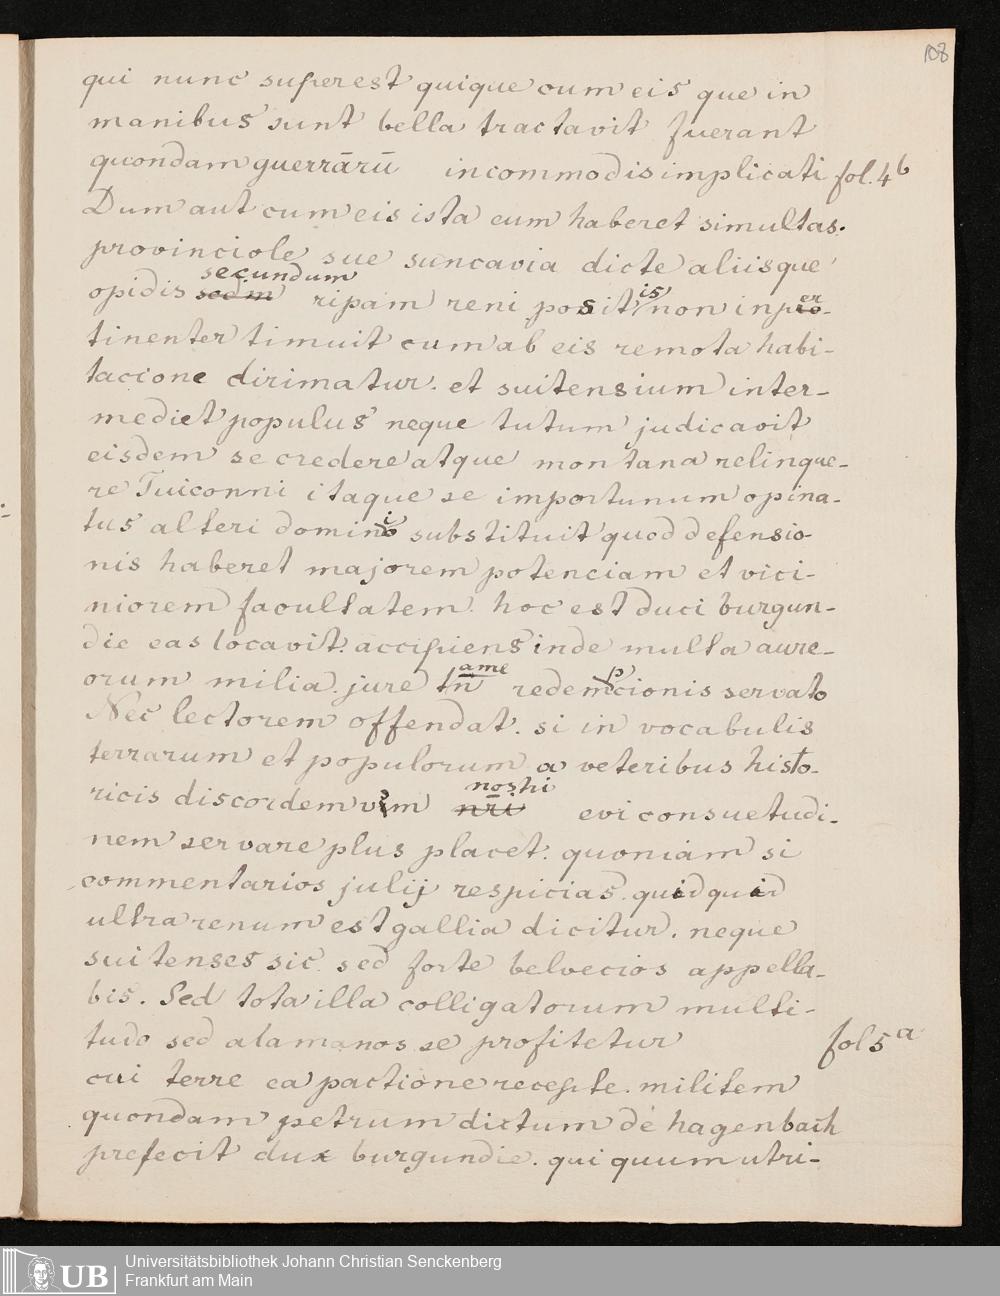 108
qui nunc superest quique cum eis que in
manibus sunt bella tractavit fuerant
quondam guerrārū incommodis implicati fol. 4b
Dum aut cum eis ista eum haberet simultas.
provinciole sue suncavia dicte aliisque
secundum
opidis sedm ripam reni positis non inper-
tinenter timuit cum ab eis remota habi-
tacione dirimatur. et suitensium inter-
mediet populus neque tutum judicavit
eisdem se credere atque montana relinque-
re Tuiconni itaque se importunum opina-
tus alteri domini substituit quod defensio-
nis haberet majorem potenciam et vici-
niorem facultatem. hoc est duci burgun-
die eas locavit. accipiens inde multa aure-
orum milia. jure tn̄ ame redempcionis servato
Nec lectorem offendat. si in vocabulis
terrarum et populorum a veteribus histo-
nostri
ricis discordem vim nr̄i evi consuetudi-
nem servare plus placet. quoniam si
commentarios julij respicias. quidquid
ultra renum est gallia dicitur. neque
suitenses sic. sed forte belvecios appella-
bis. Sed tota illa colligatorum multi-
tudo sed alamanos se profitetur fol 5a
cui terre ea pactione recepte. militem
quondam petrum dictum de hagenbach
prefecit dux burgundie. qui quum utri-
UB Universitätsbibliothek Johann Christian Senckenberg
Frankfurt am Main